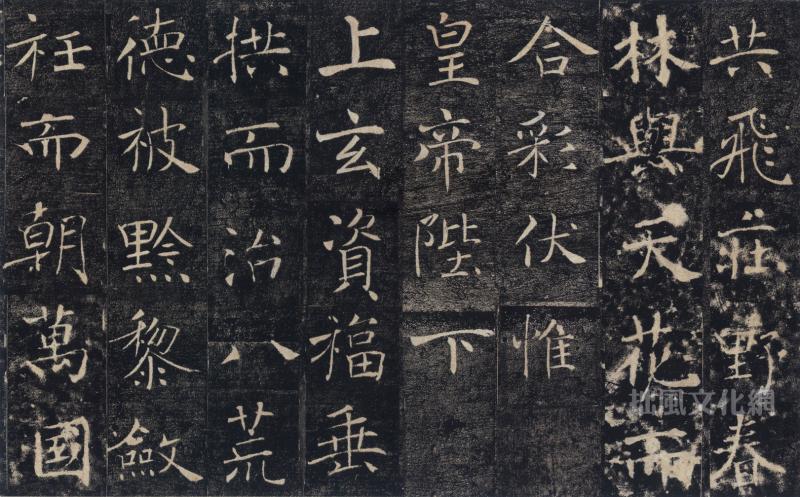 共飛莊野春
林與天花而
合彩伏惟
皇帝陛下
上玄資福垂
拱而治八荒
德被黔黎斂
衽而朝萬國
拙風文化網